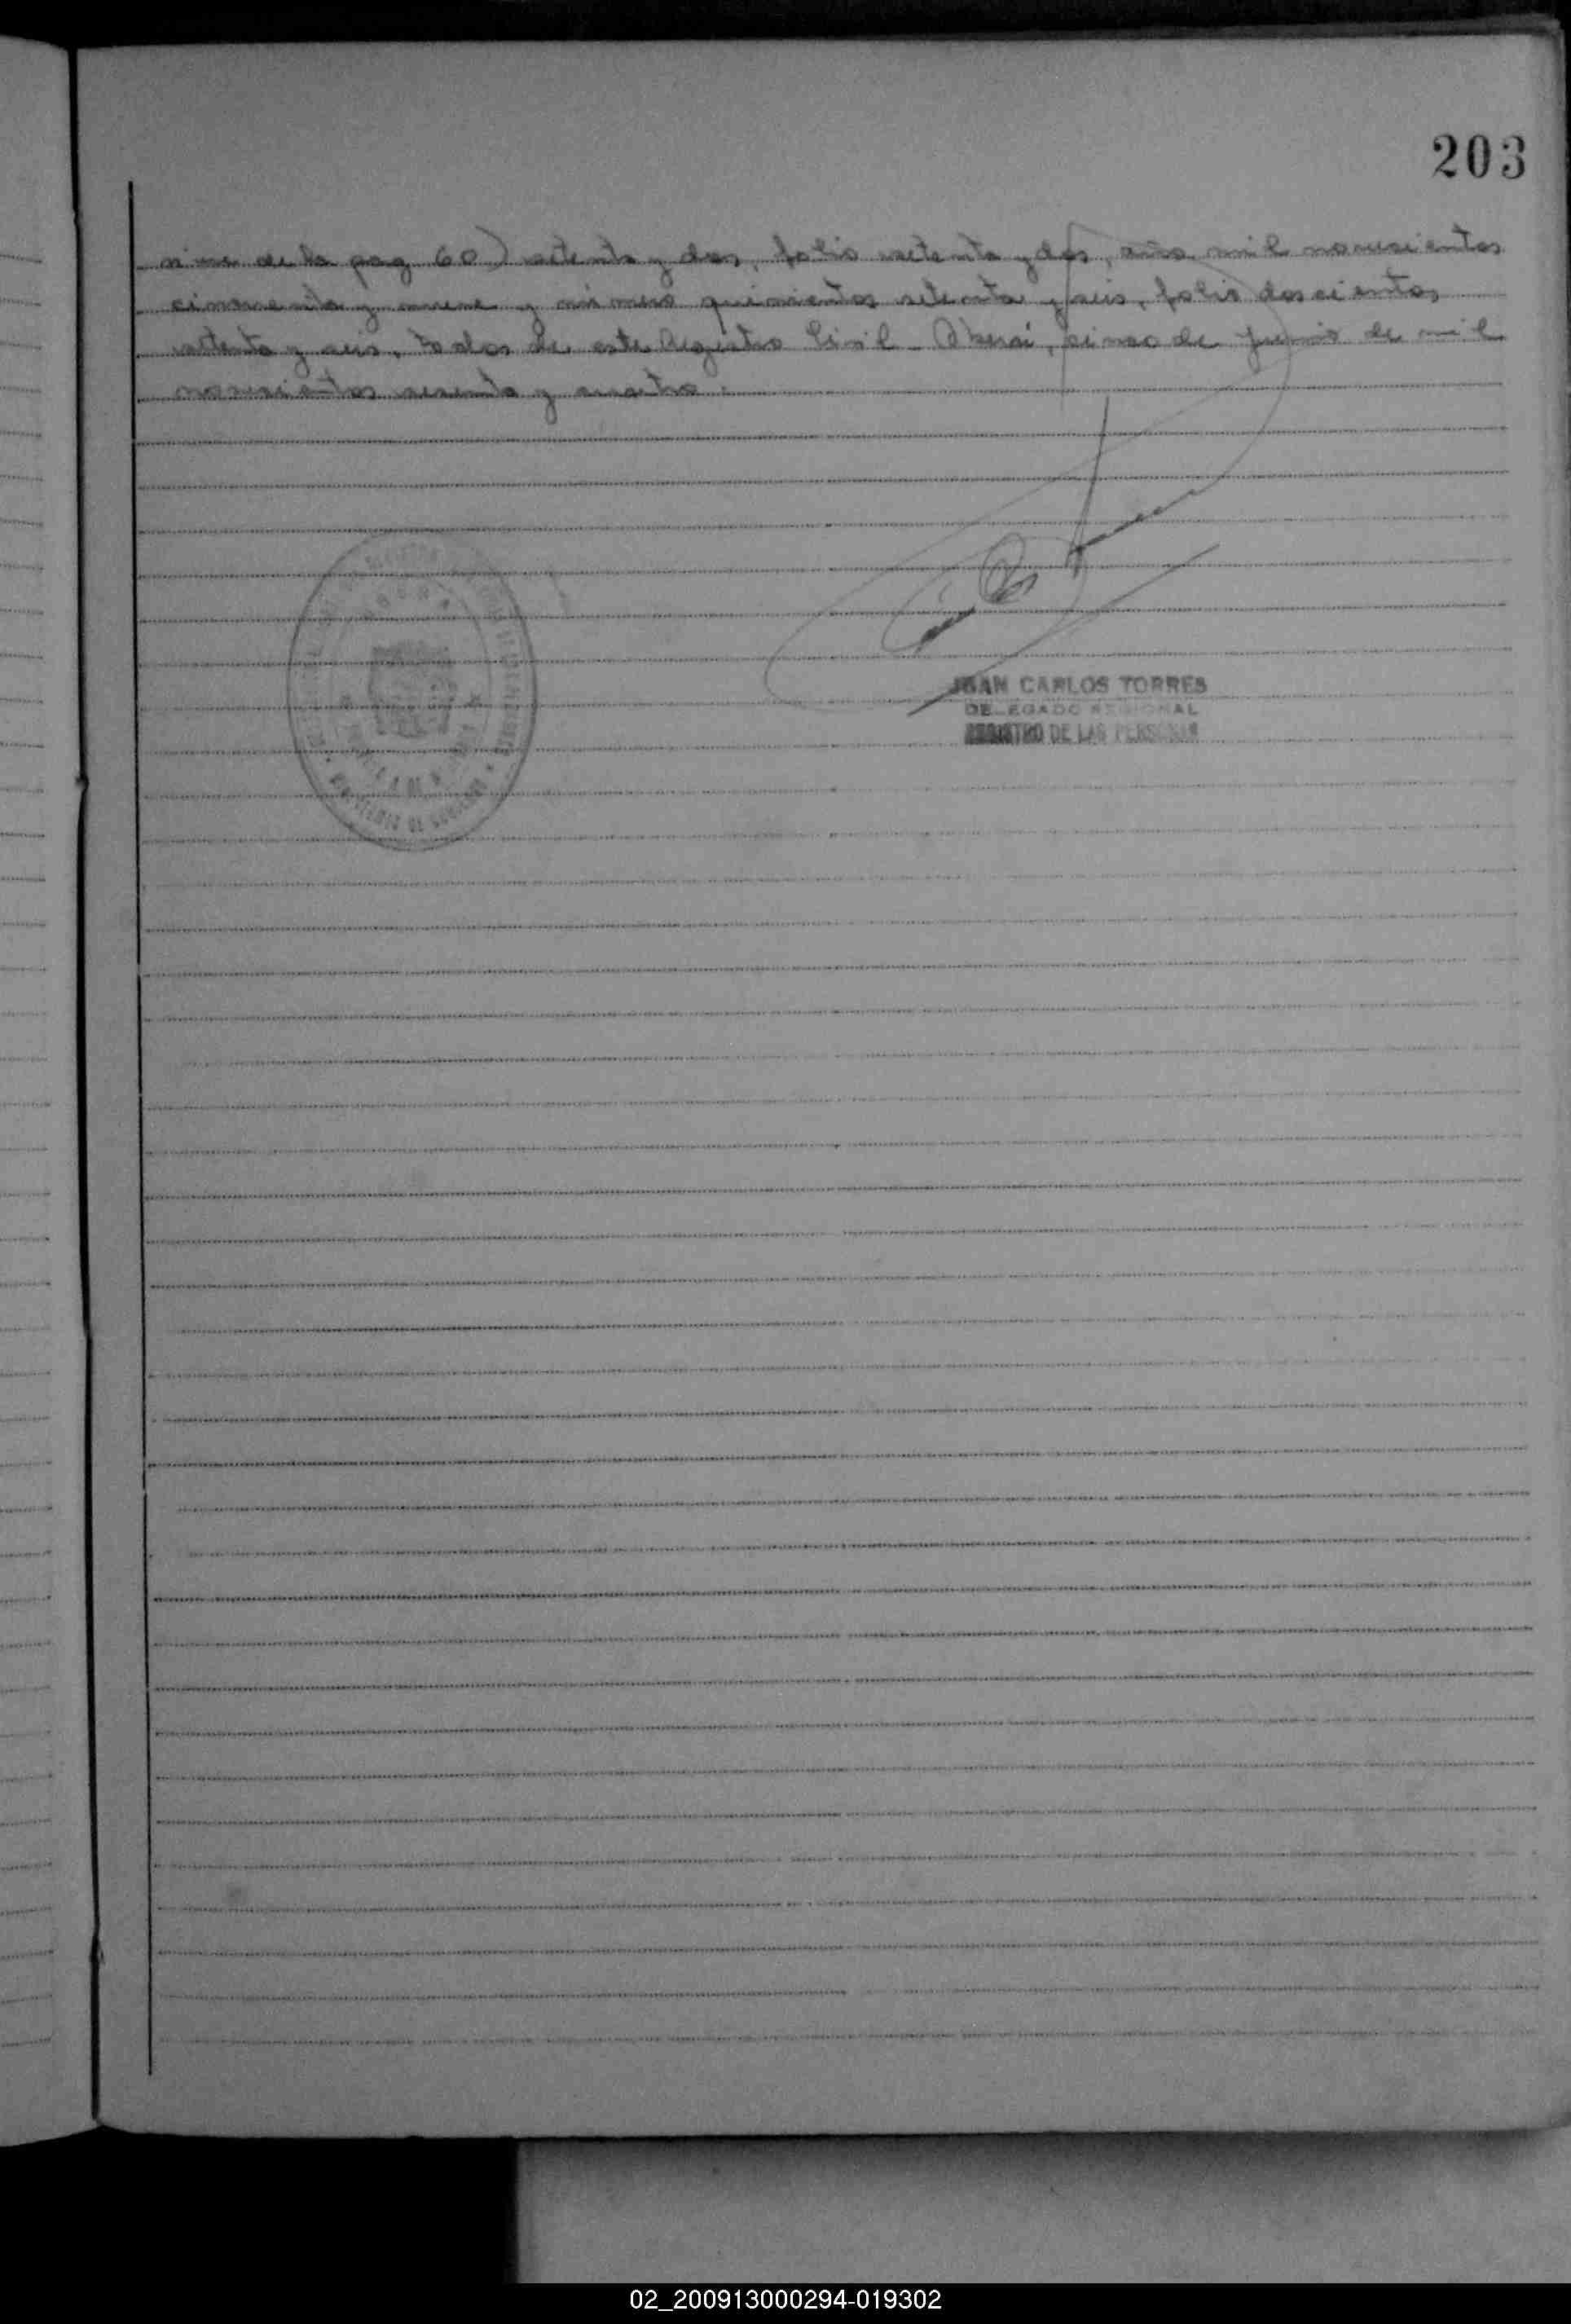 203
viene de la pag 60) setenta y dos, folio setenta y dos, año mil novecientos
cincuenta y nueve y número quinientos setenta y seis, folio doscientos
setenta y seis, todos de este Registro Civil - Oberá, cinco de junio de mil
novecientos sesenta y cuatro.
JUAN CARLOS TORRES
DELEGADO REGIONAL
REGISTRO DE LAS PERSONAS
02_200913000294-019302